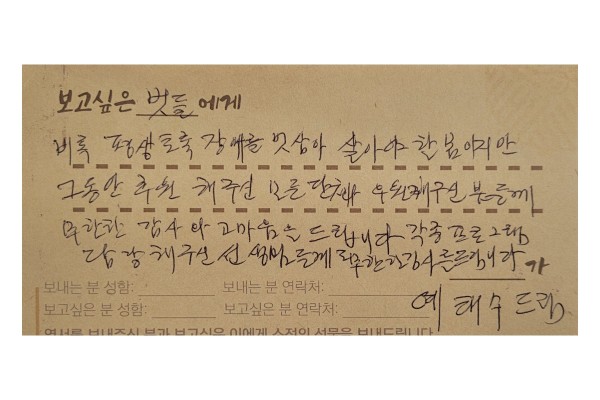 보고싶은 벗들에게
비록 평생토록 장애를 벗삼아 살아야 할 몸이지만
그동안 후원 해주신 모든 단체와 후원해주신 분들께
무한한 감사와 고마움을 드립니다 각종 프로그램
담당 해주신 선생님들께 무한한 감사를 드립니다 가
보내는 분 성함: 보내는 분 연락처:
예태수 드림
보고싶은 분 성함: 보고싶은 분 연락처:
엽서를 보내주신 분과 보고싶은 이에게 소정의 선물을 보내드립니다